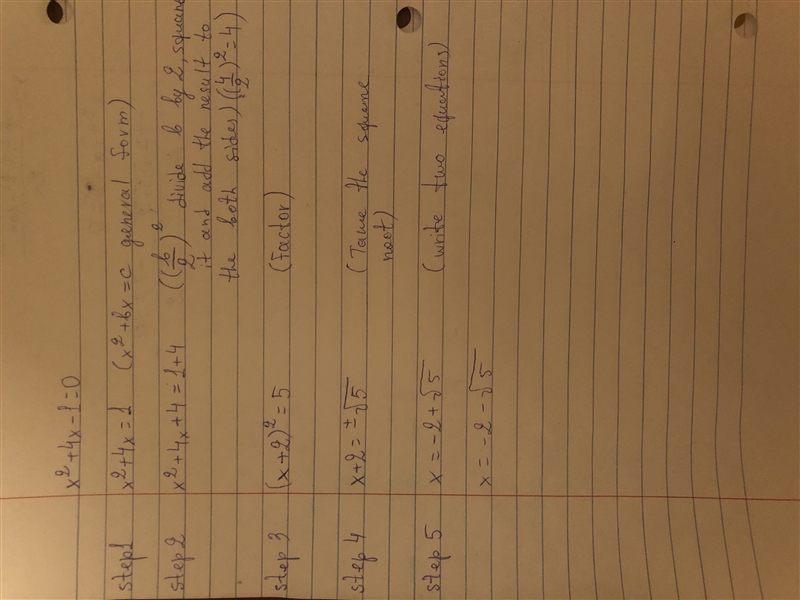 x² + 4x - 1 = 0
step 1 x² + 4x = 1 (x² + bx = c general form)
step 2 x² + 4x + 4 = 1 + 4 ((b/2)² divide b by 2, square
it and add the result to
the both sides) ((4/2)² = 4)
step 3 (x + 2)² = 5 (Factor)
step 4 x + 2 = ±√5 (Take the square
root)
step 5 x = -2 + √5 (write two equations)
x = -2 - √5